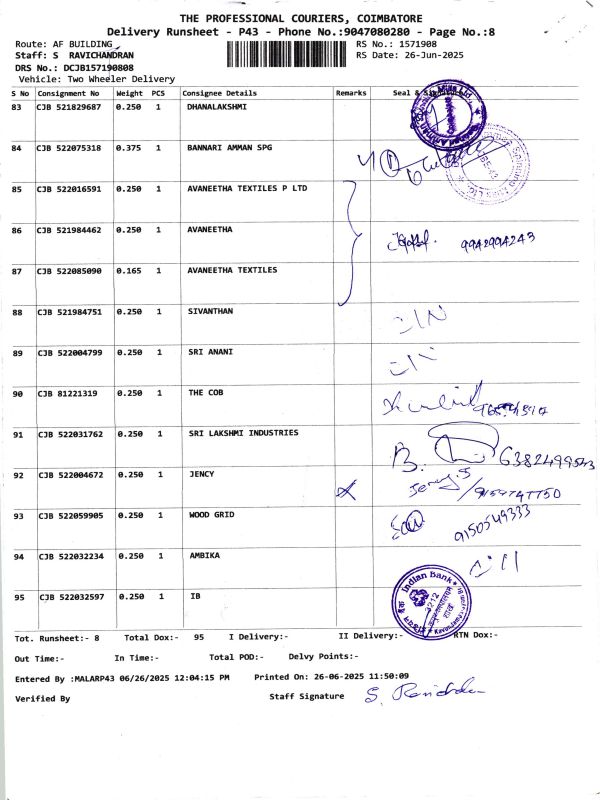 THE PROFESSIONAL COURIERS, COIMBATORE
Delivery Runsheet - P43 - Phone No.:9047080280 - Page No.:8
Route: AF BUILDING
RS No.: 1571908
Staff: S RAVICHANDRAN
RS Date: 26-Jun-2025
DRS No.: DCJB157190808
Vehicle: Two Wheeler Delivery
S No Consignment No Weight PCS Consignee Details Remarks Seal &
83 CJB 521829687 0.250 1 DHANALAKSHMI
84 CJB 522075318 0.375 1 BANNARI AMMAN SPG
85 CJB 522016591 0.250 1 AVANEETHA TEXTILES P LTD
86 CJB 521984462 0.250 1 AVANEETHA 9942994243
87 CJB 522085090 0.165 1 AVANEETHA TEXTILES
88 CJB 521984751 0.250 1 SIVANTHAN
89 CJB 522004799 0.250 1 SRI ANANI
90 CJB 81221319 0.250 1 THE COB
91 CJB 522031762 0.250 1 SRI LAKSHMI INDUSTRIES B.
92 CJB 522004672 0.250 1 JENCY Jency.S
93 CJB 522059905 0.250 1 WOOD GRID 9150549333
94 CJB 522032234 0.250 1 AMBIKA
95 CJB 522032597 0.250 1 IB Indian Bank
Tot. Runsheet:- 8 Total Dox:- 95 I Delivery:- II Delivery:- RTN Dox:-
Out Time:- In Time:- Total POD:- Delvy Points:-
Entered By :MALARP43 06/26/2025 12:04:15 PM Printed On: 26-06-2025 11:50:09
Verified By Staff Signature S. Ravichandran